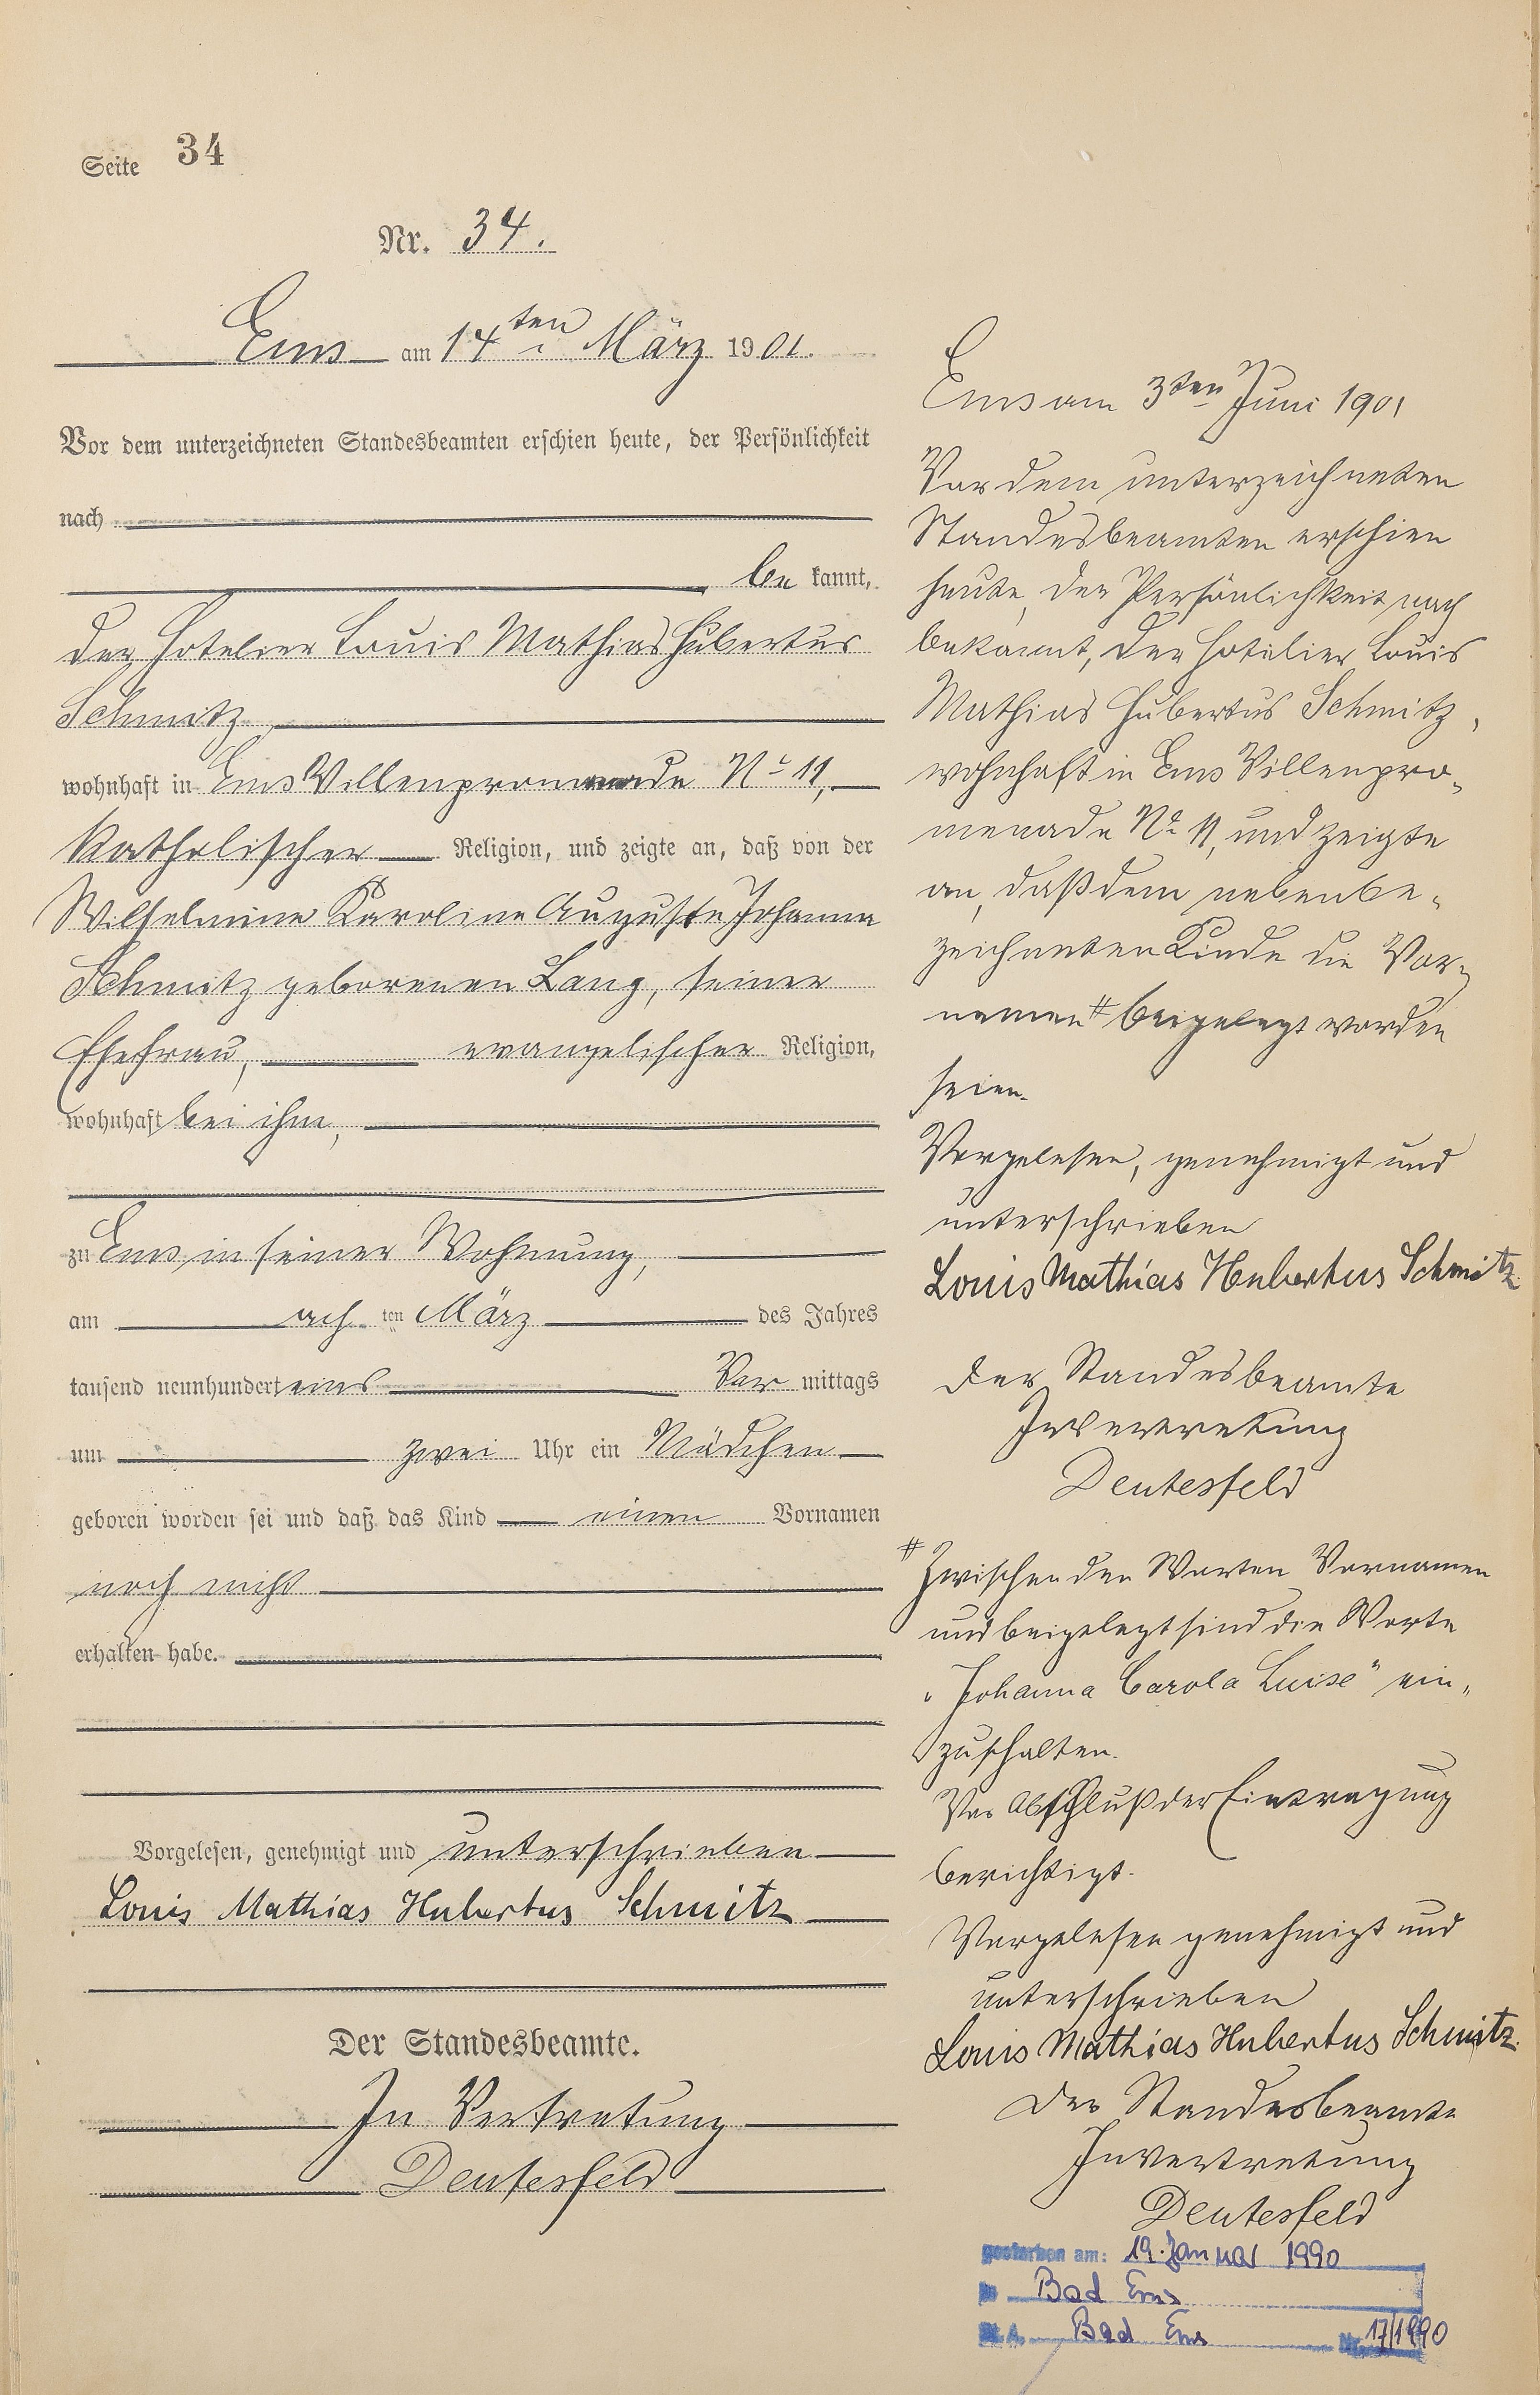 Seite 34
Nr. 34.
Ems am 14ten März 1901.
Vor dem unterzeichneten Standesbeamten erschien heute, der Persönlichkeit
nach
be kannt,
der Hotelier Louis Mathias Hubertus
Schmitz,
wohnhaft in Ems Villenpromenade No 11,
katholischer Religion, und zeigte an, daß von der
Wilhelmine Karoline Auguste Johanna
Schmitz geborenen Lang, seiner
Ehefrau, evangelischer Religion,
wohnhaft bei ihm,
zu Ems in seiner Wohnung,
am ach ten März des Jahres
tausend neunhundert eins Vor mittags
um zwei Uhr ein Mädchen
geboren worden sei und daß das Kind einen Vornamen
noch nicht
erhalten habe.
Vorgelesen, genehmigt und unterschrieben
Louis Mathias Hubertus Schmitz
Der Standesbeamte.
In Vertretung
Deutesfeld
Ems am 3ten Juni 1901
Vor dem unterzeichneten
Standesbeamten erschien
heute, der Persönlichkeit nach
bekannt, der Hotelier Louis
Mathias Hubertus Schmitz,
wohnhaft in Ems Villenpro-
menade No 11, und zeigte
an, daß dem nebenbe-
zeichneten Kinde die Vor-
namen # beigelegt worden
seien.
Vorgelesen, genehmigt und
unterschrieben
Louis Mathias Hubertus Schmitz
Der Standesbeamte
In Vertretung
Deutesfeld
# Zwischen den Worten Vornamen
und beigelegt sind die Worte
"Johanna Carola Luise" ein-
zuschalten.
Vor Abschluß der Eintragung
berichtigt.
Vorgelesen genehmigt und
unterschrieben
Louis Mathias Hubertus Schmitz.
Der Standesbeamte
In Vertretung
Deutesfeld
gestorben am: 19. Januar 1990
in Bad Ems
St. A. Bad Ems Nr. 17/1990